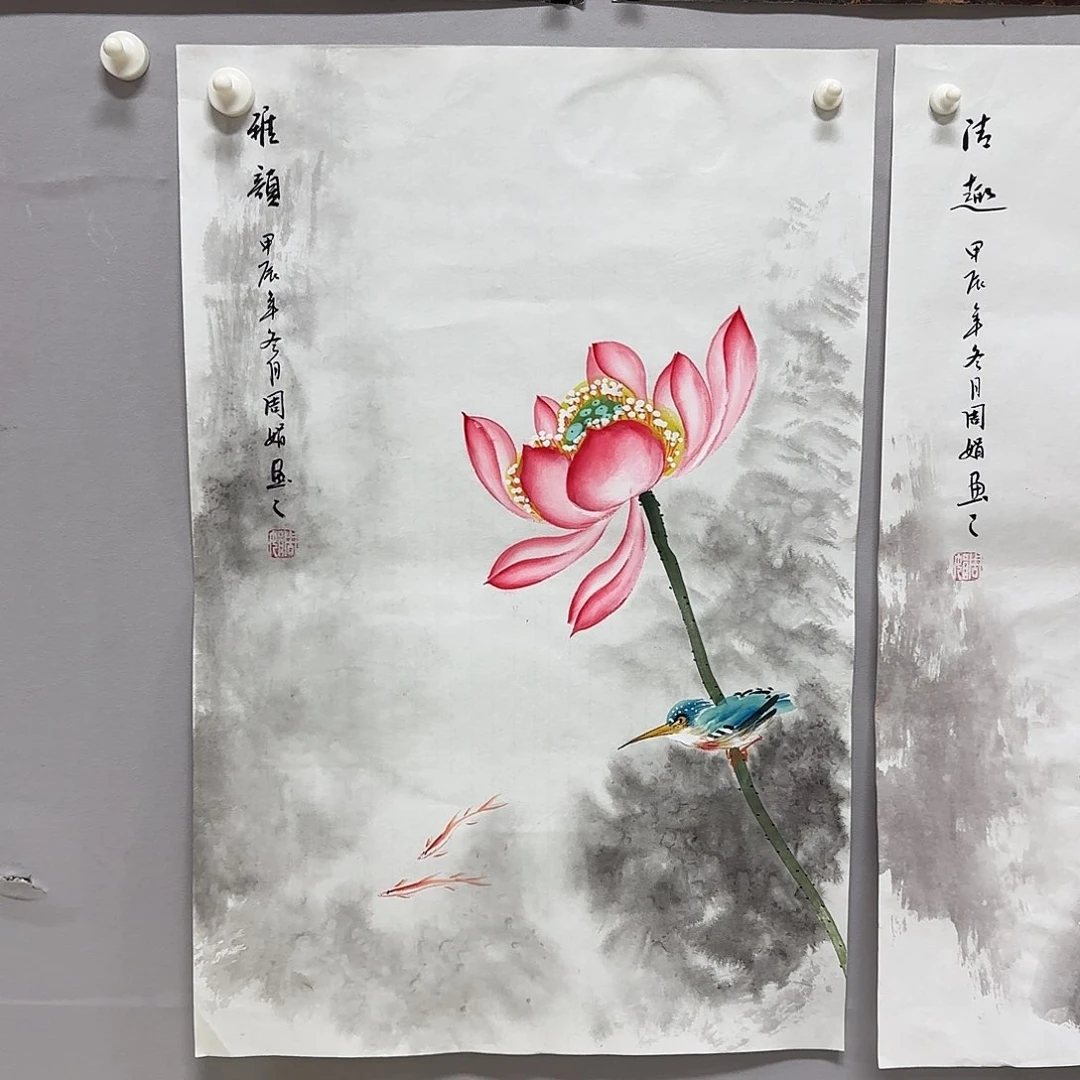 雅韻
甲辰年冬月周娟画之
清趣
甲辰年冬月周娟画之